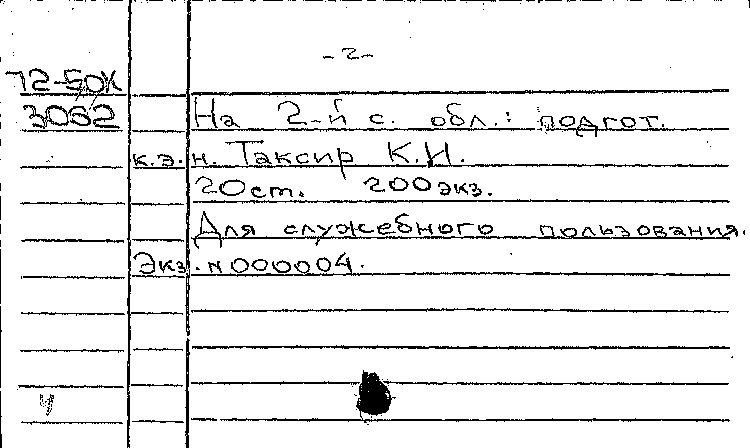 -2-
72-50К
3062
На 2-й с. обл.: подгот.
к.э.н. Таксир К.И.
20ст. 200экз.
Для служебного пользования.
Экз. №000004.
4